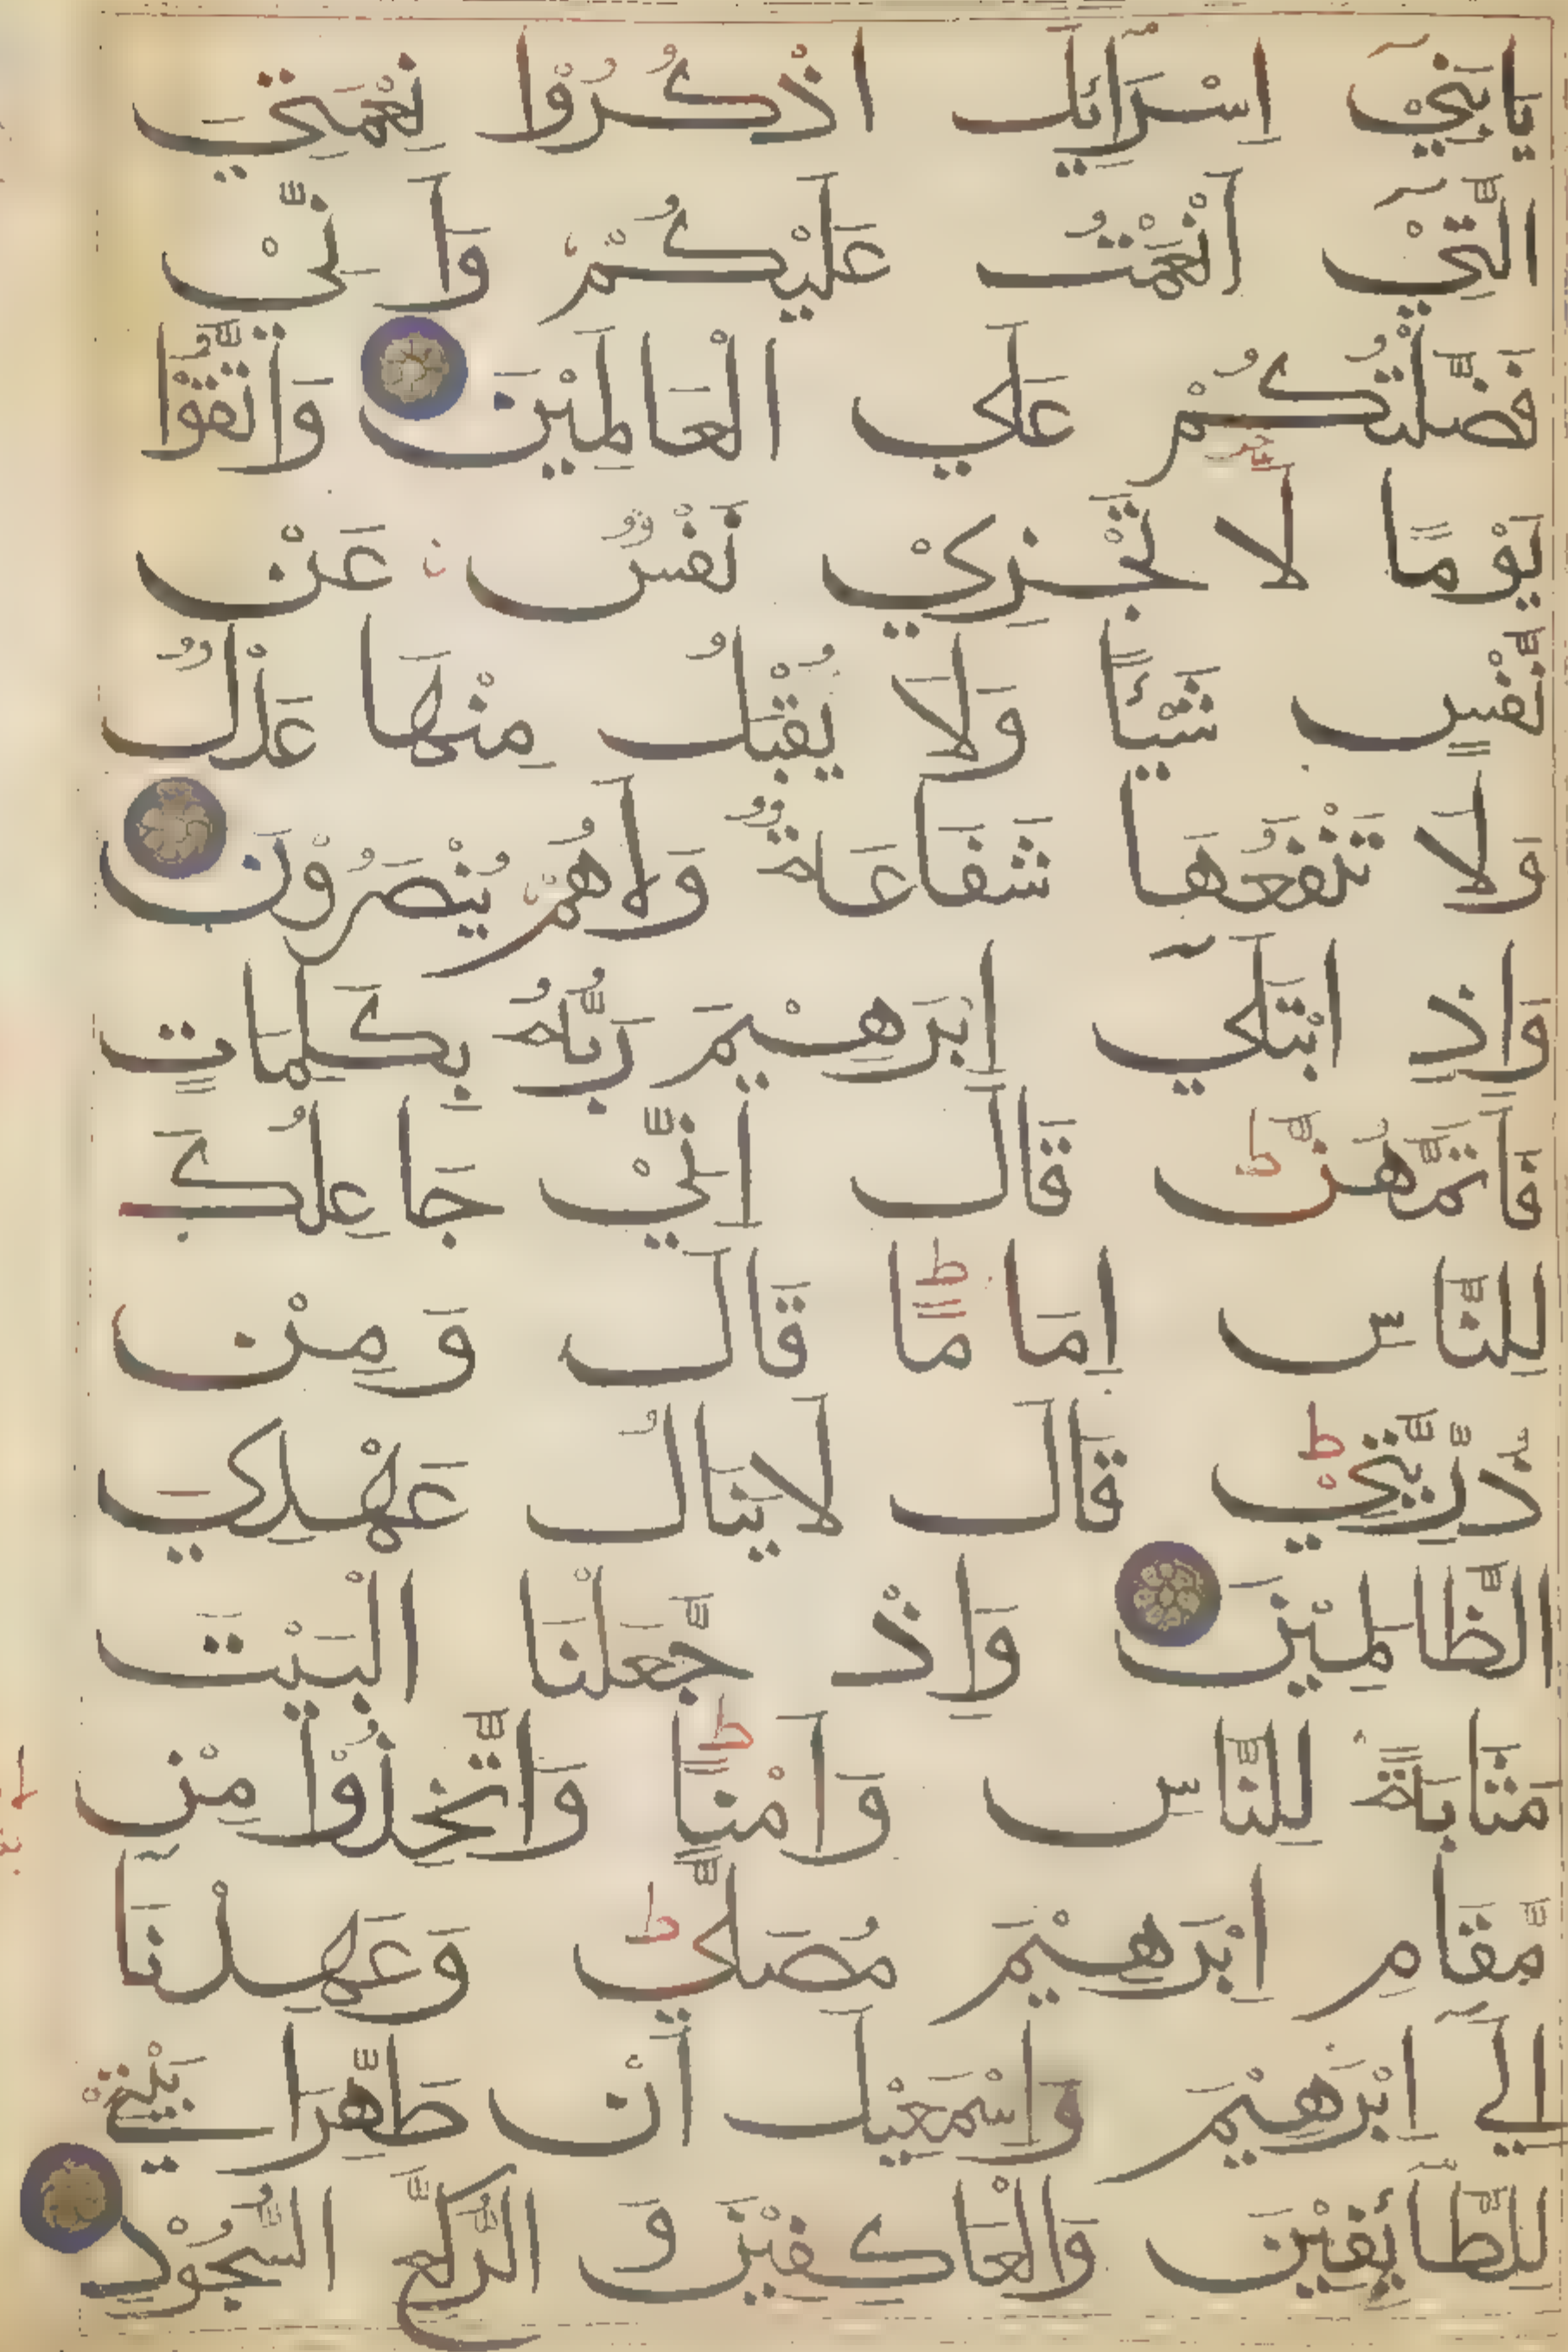 يَابَنِيْ اِسْرَائِيلَ اذْكُرُوْا نِعْمَتِيَ
الَّتِيْ اَنْعَمْتُ عَلَيْكُمْ وَاَنِّيْ
فَضَّلْتُكُمْ عَلَي الْعَالَمِيْنَ وَاتَّقُوْا
يَوْمًا لَا تَجْزِيْ نَفْسٌ عَنْ
نَّفْسٍ شَيْئًا وَلَا يُقْبَلُ مِنْهَا عَدْلٌ
وَلَا تَنْفَعُهَا شَفَاعَةٌ وَلَا هُمْ يُنْصَرُوْنَ
وَاِذِ ابْتَلَي اِبْرَهِيْمَ رَبُّهُ بِكَلِمَاتٍ
فَاَتَمَّهُنَّ ط قَالَ اِنِّيْ جَاعِلُكَ
لِلنَّاسِ اِمَامًا ط قَالَ وَمِنْ
ذُرِّيَّتِيْ ط قَالَ لَا يَنَالُ عَهْدِيَ
الظَّالِمِيْنَ وَاِذْ جَّعَلْنَا الْبَيْتَ
مَثَابَةً لِلنَّاسِ وَاَمْنًا ط وَاتَّخِذُوْا مِنْ
مَّقَامِ اِبْرَهِيْمَ مُصَلًّي ط وَعَهِدْنَا
اِلَي اِبْرَهِيْمَ وَاِسْمَعِيْلَ اَنْ طَهِّرَا بَيْتِيَ
لِلطَّائِفِيْنَ وَالْعَاكِفِيْنَ وَ الرُّكَّعِ السُّجُوْدِ